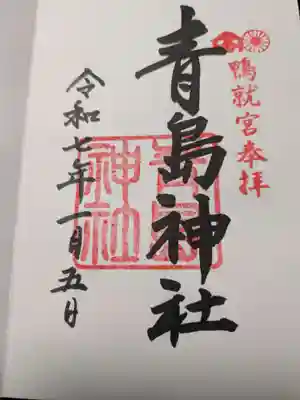 鴨就宮奉拝
青島神社
青島
神社
令和七年一月五日